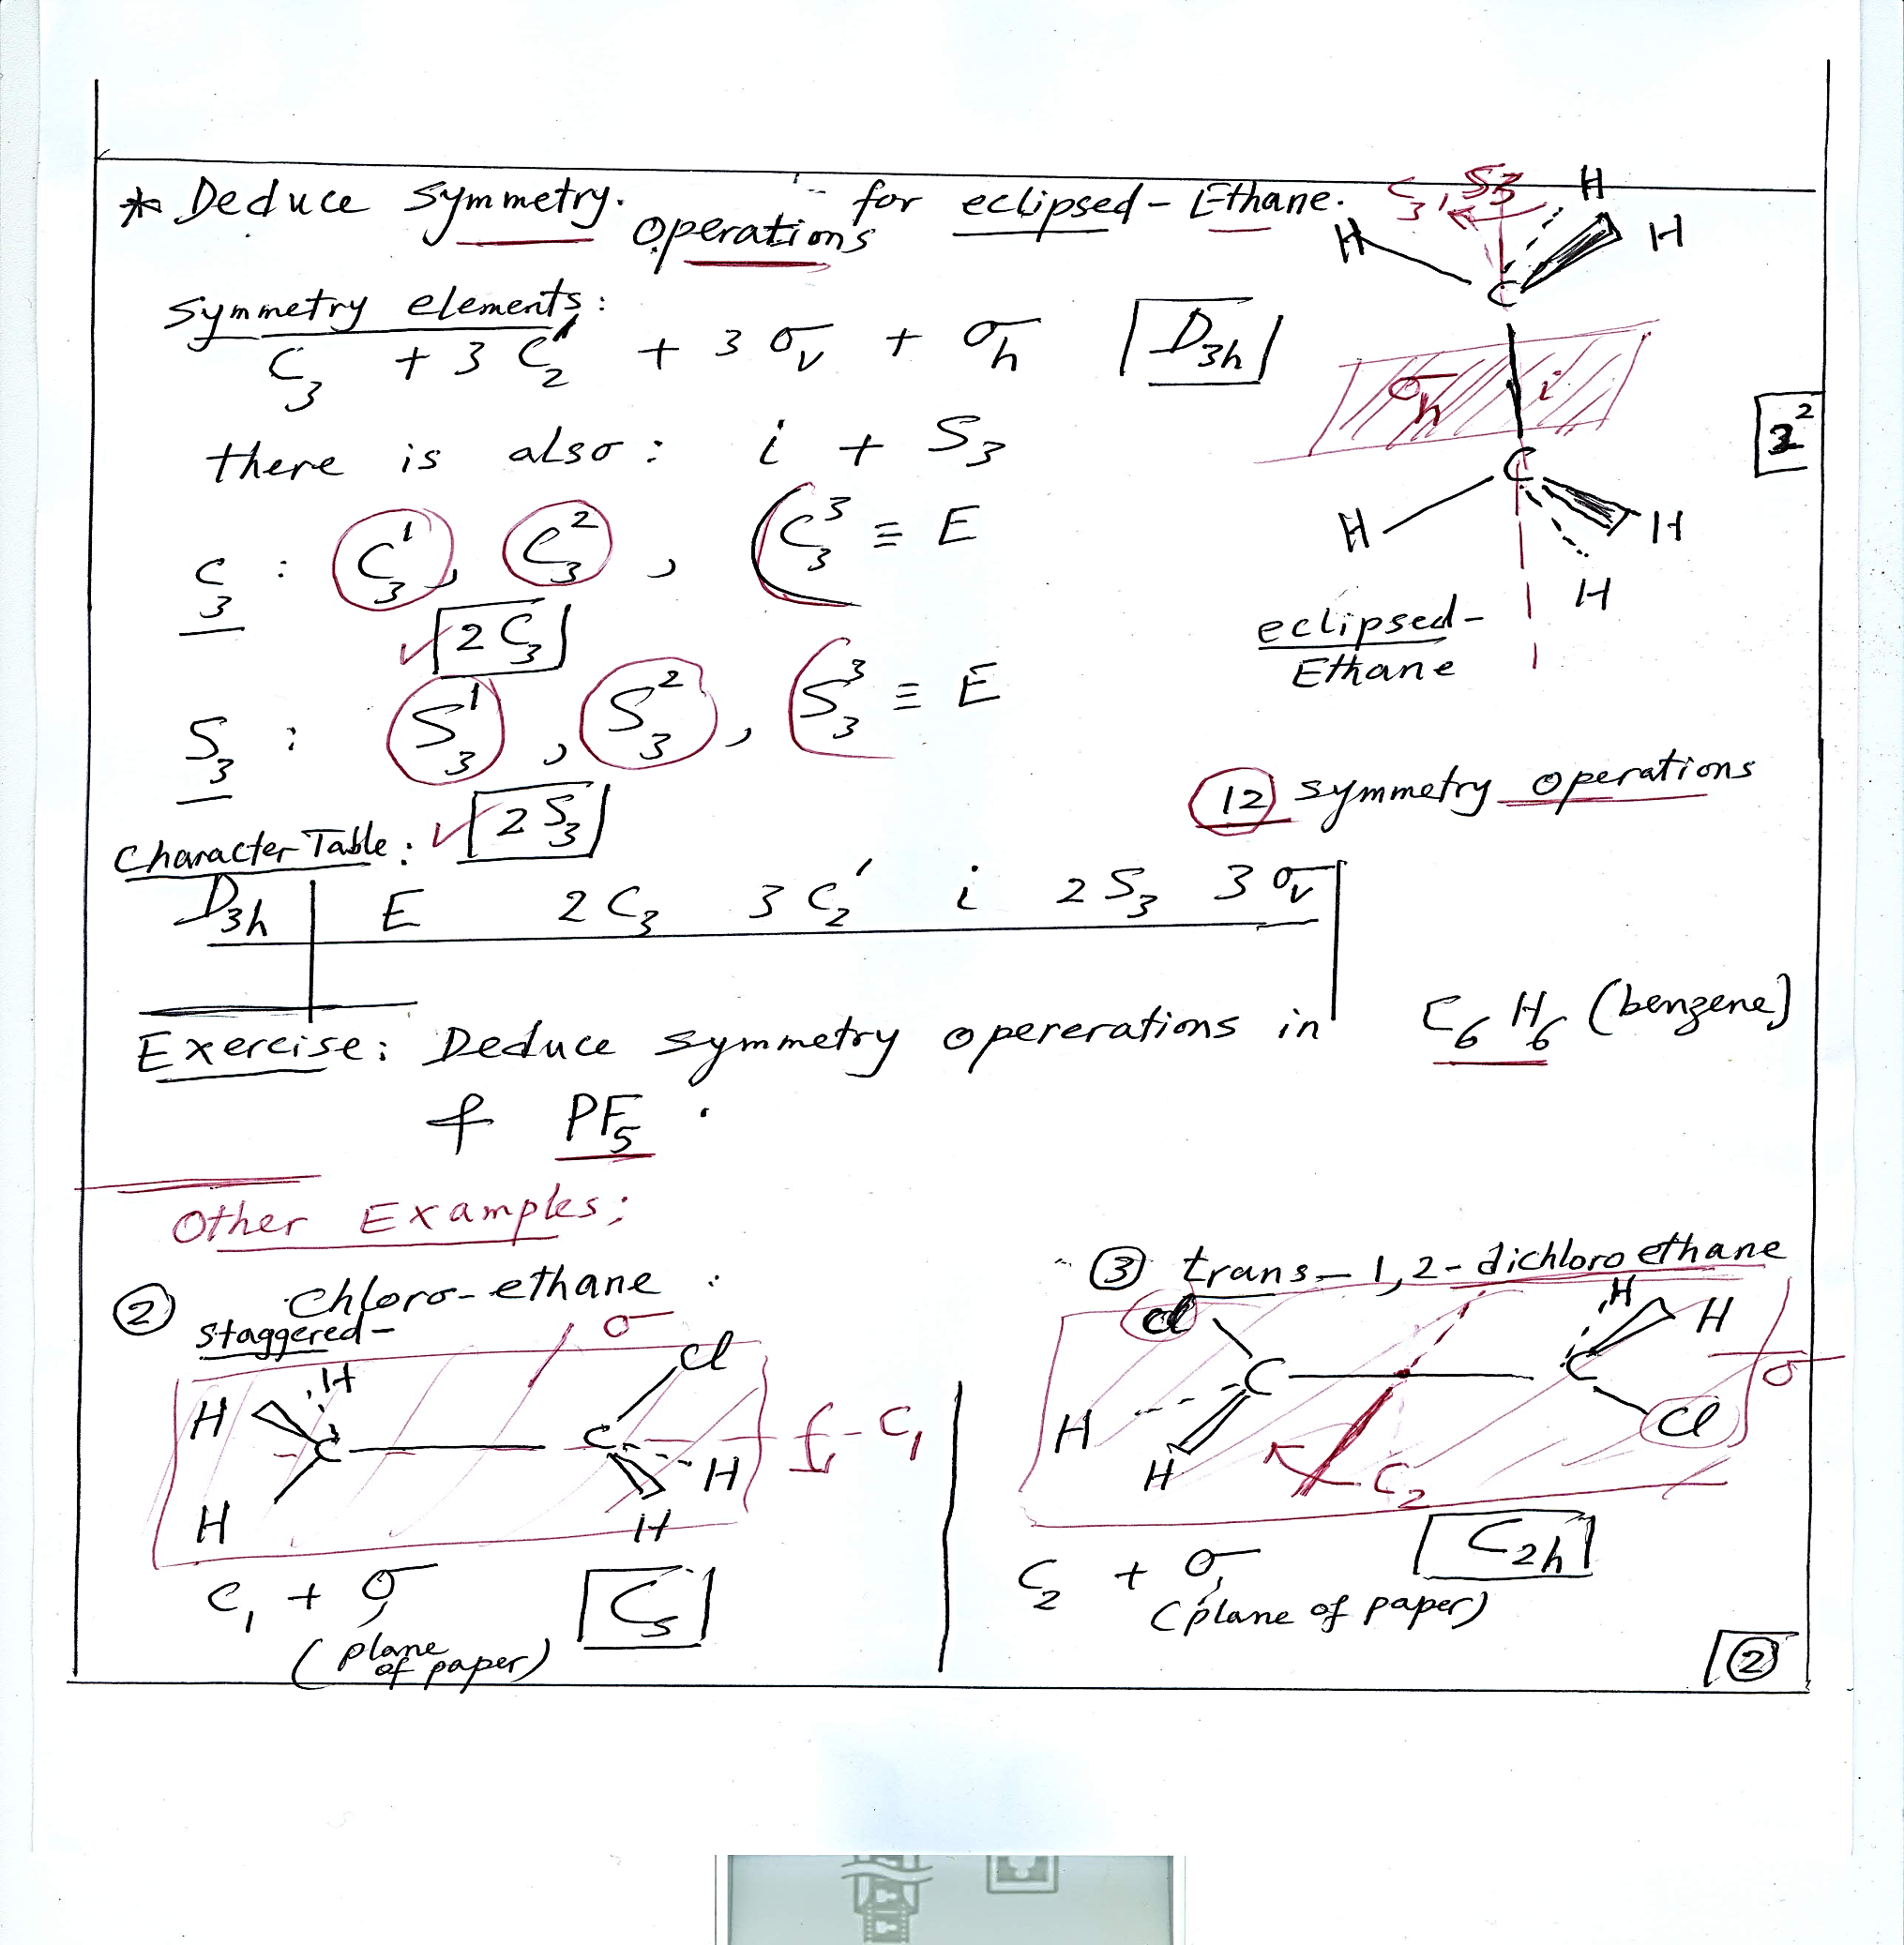 * Deduce symmetry operations for eclipsed-Ethane.
symmetry elements:
C₃ + 3 C₂' + 3 σᵥ + σₕ D₃ₕ
there is also: i + S₃
C₃ : C₃¹, C₃², C₃³ ≡ E
✓ 2C₃
S₃ : S₃¹, S₃², S₃³ ≡ E
✓ 2S₃
C₃, S₃
H
H
H
C
σₕ i
C
H
H
H
eclipsed-
Ethane
2
12 symmetry operations
Character Table:
D₃ₕ E 2C₃ 3C₂' i 2S₃ 3σᵥ
Exercise: Deduce symmetry opererations in C₆H₆ (benzene)
& PF₅.
Other Examples:
② chloro-ethane:
staggered-
σ
H H C C Cl
H H H
C₁
C₁ + σ Cs
(plane of paper)
③ trans-1,2-dichloroethane
Cl C C H H
H H Cl σ
C₂
C₂ + σ C₂ₕ
(plane of paper)
②